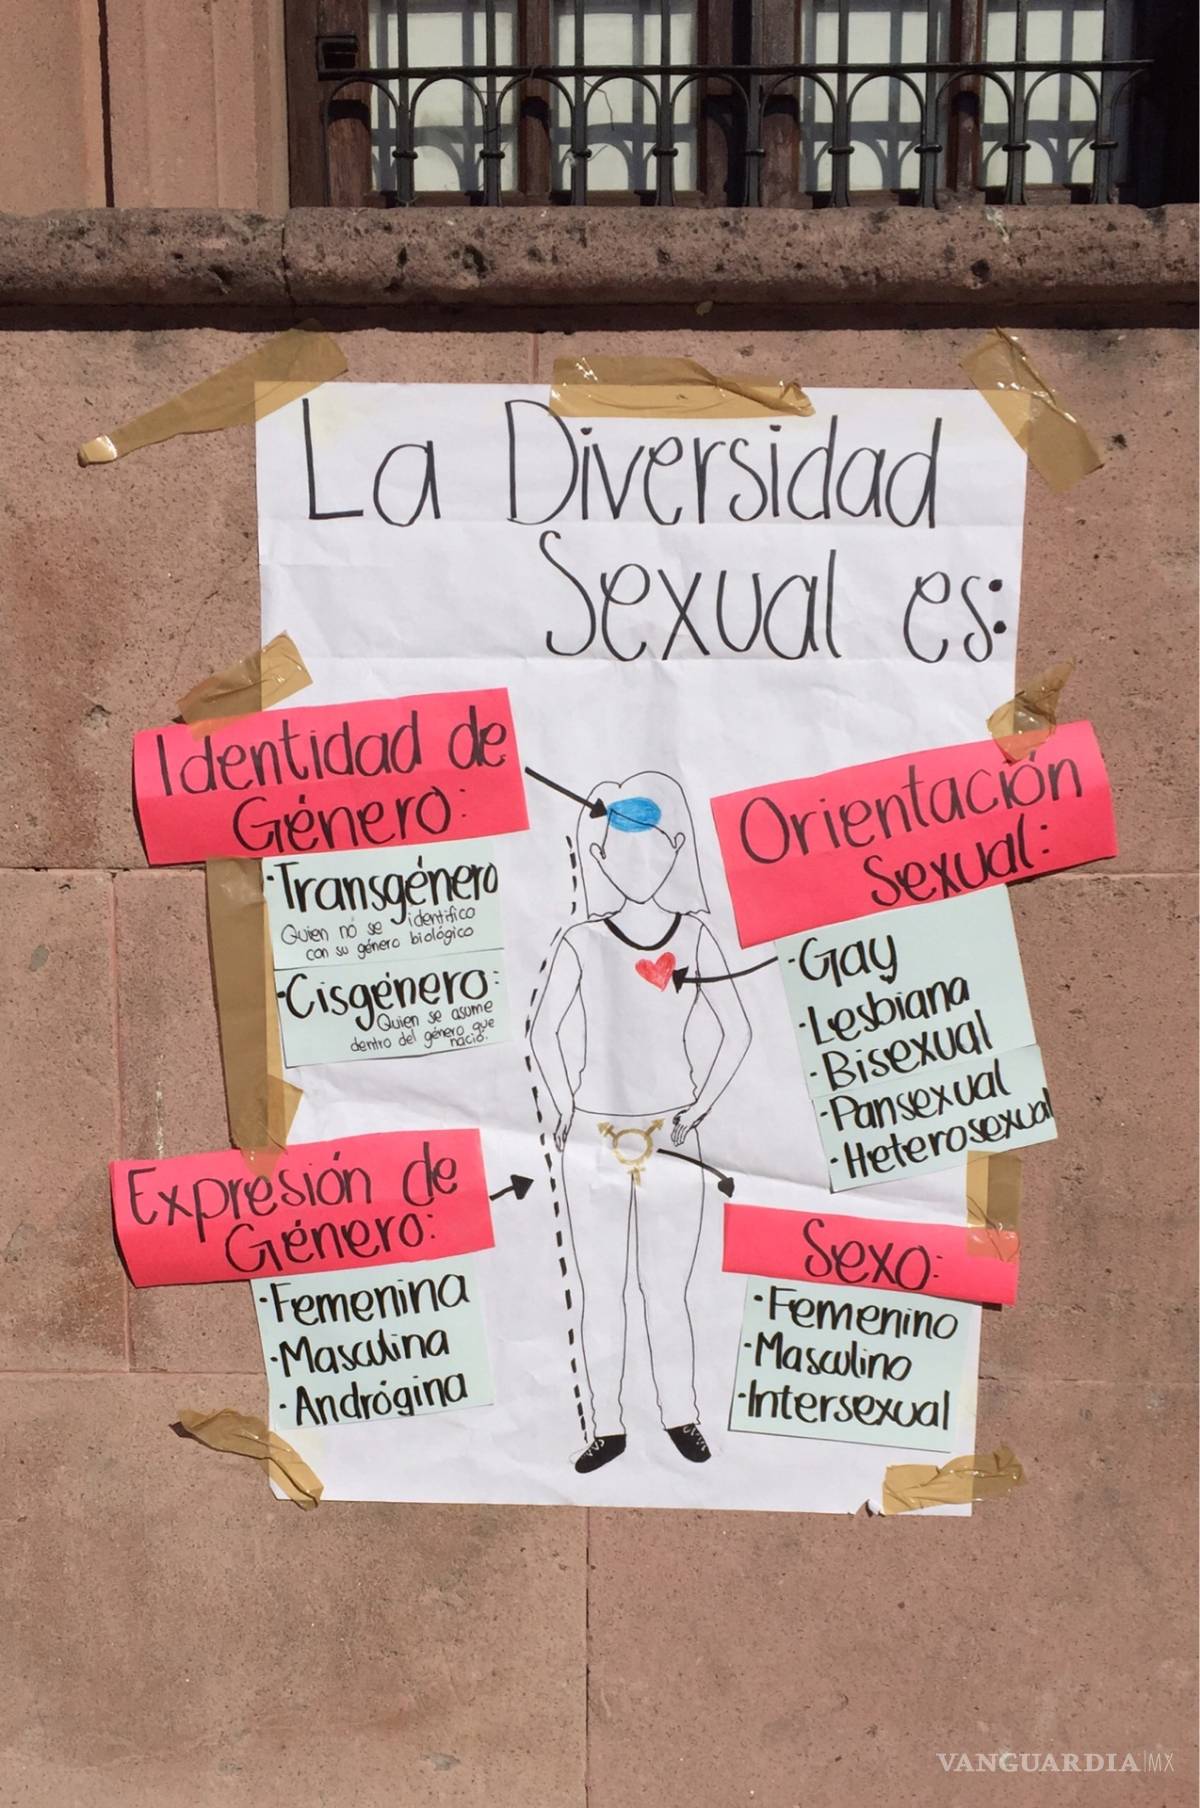 La Diversidad
Sexual es:
Identidad de
Género:
·Transgénero
Quien no se identifico
con su género biológico
·Cisgénero:
Quien se asume
dentro del género que
nació.
Orientación
Sexual:
·Gay
·Lesbiana
·Bisexual
·Pansexual
·Heterosexual
Expresión de
Género:
·Femenina
·Masculina
·Andrógina
Sexo:
·Femenino
·Masculino
·Intersexual
VANGUARDIA|MX